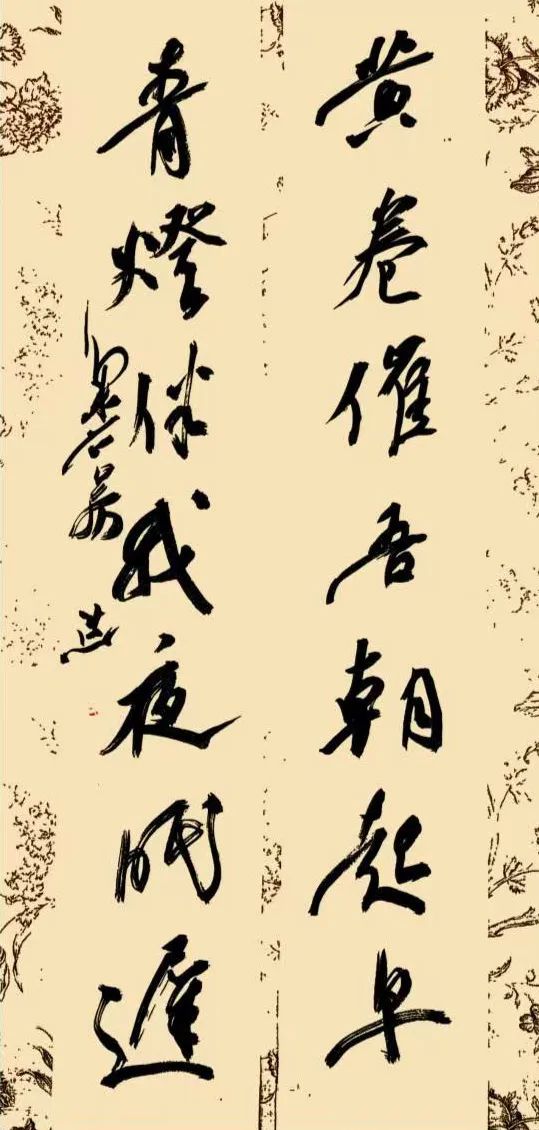 黄卷催吾朝起早
青燈伴我夜眠遲